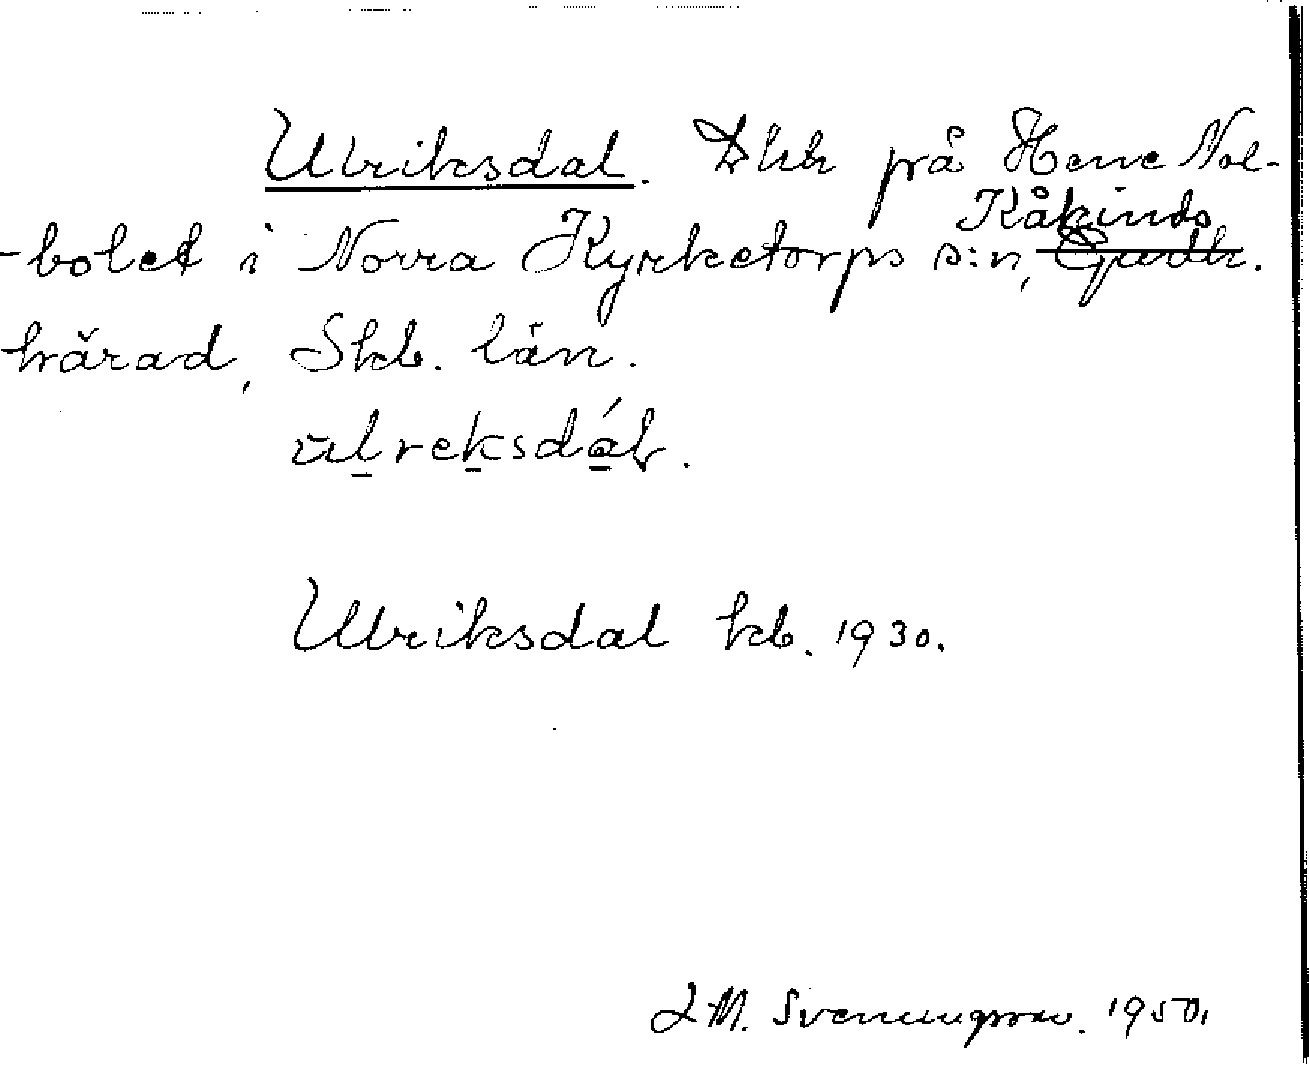 Ulriksdal. Lht på Hene Nol-
Kåkinds
-bolet i Norra Kyrketorps s:n, Gudh.
härad, Skb. län.
ulreksdáL.
Ulriksdal kb. 1930.
L M. Svenungsson. 1950.